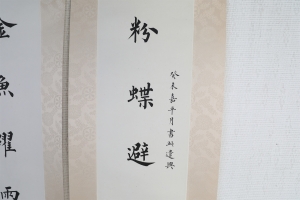 金魚躍雨
粉蝶避
癸未嘉平月書於遼興